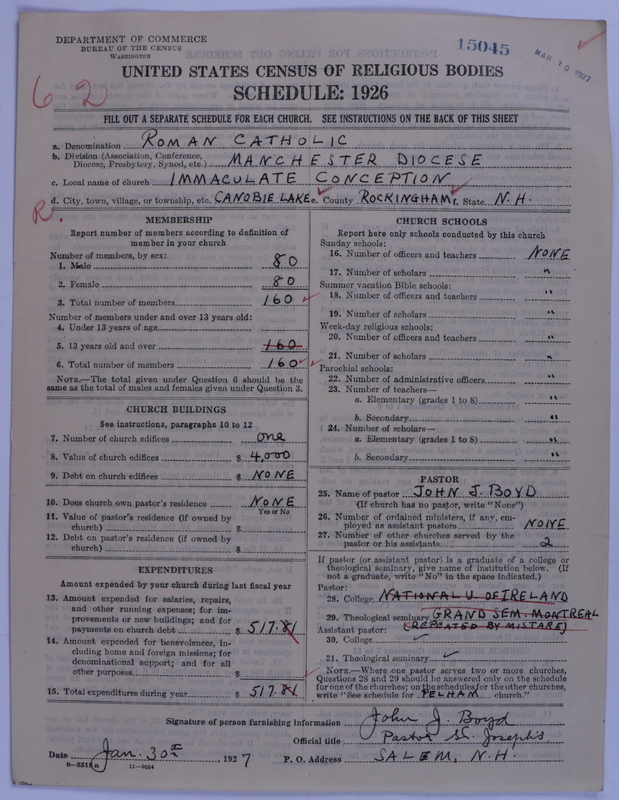 DEPARTMENT OF COMMERCE
BUREAU OF THE CENSUS
WASHINGTON
15045
MAR 10 1927
62
UNITED STATES CENSUS OF RELIGIOUS BODIES
SCHEDULE: 1926
FILL OUT A SEPARATE SCHEDULE FOR EACH CHURCH. SEE INSTRUCTIONS ON THE BACK OF THIS SHEET
a. Denomination ROMAN CATHOLIC
b. Division (Association, Conference, Diocese, Presbytery, Synod, etc.) MANCHESTER DIOCESE
c. Local name of church IMMACULATE CONCEPTION
d. City, town, village, or township, etc. CANOBIE LAKE e. County ROCKINGHAM f. State N.H.
R.
MEMBERSHIP
Report number of members according to definition of
member in your church
Number of members, by sex:
1. Male 80
2. Female 80
3. Total number of members 160
Number of members under and over 13 years old:
4. Under 13 years of age
5. 13 years old and over 160
6. Total number of members 160
NOTE.—The total given under Question 6 should be the
same as the total of males and females given under Question 3.
CHURCH BUILDINGS
See instructions, paragraphs 10 to 12
7. Number of church edifices one
8. Value of church edifices $ 4,000
9. Debt on church edifices $ NONE
10. Does church own pastor's residence NONE
Yes or No
11. Value of pastor's residence (if owned by
church) $
12. Debt on pastor's residence (if owned by
church) $
EXPENDITURES
Amount expended by your church during last fiscal year
13. Amount expended for salaries, repairs,
and other running expenses; for im-
provements or new buildings; and for
payments on church debt $ 517.81
14. Amount expended for benevolences, in-
cluding home and foreign missions; for
denominational support; and for all
other purposes $
15. Total expenditures during year $ 517.81
CHURCH SCHOOLS
Report here only schools conducted by this church
Sunday schools:
16. Number of officers and teachers NONE
17. Number of scholars "
Summer vacation Bible schools:
18. Number of officers and teachers "
19. Number of scholars "
Week-day religious schools:
20. Number of officers and teachers "
21. Number of scholars "
Parochial schools:
22. Number of administrative officers "
23. Number of teachers—
a. Elementary (grades 1 to 8) "
b. Secondary "
24. Number of scholars—
a. Elementary (grades 1 to 8) "
b. Secondary "
PASTOR
25. Name of pastor JOHN J. BOYD
(If church has no pastor, write "None")
26. Number of ordained ministers, if any, em-
ployed as assistant pastors NONE
27. Number of other churches served by the
pastor or his assistants 2
If pastor (or assistant pastor) is a graduate of a college or
theological seminary, give name of institution below. (If
not a graduate, write "No" in the space indicated.)
Pastor:
28. College NATIONAL U. OF IRELAND
29. Theological seminary GRAND SEM. MONTREAL
Assistant pastor: (REPEATED BY MISTAKE)
30. College
31. Theological seminary
NOTE.—Where one pastor serves two or more churches,
Questions 28 and 29 should be answered only on the schedule
for one of the churches; on the schedules for the other churches,
write "See schedule for PELHAM church."
Signature of person furnishing information John J. Boyd
Official title Pastor St. Joseph's
Date Jan. 30th 1927 P. O. Address SALEM, N.H.
8-5518a 11-9034